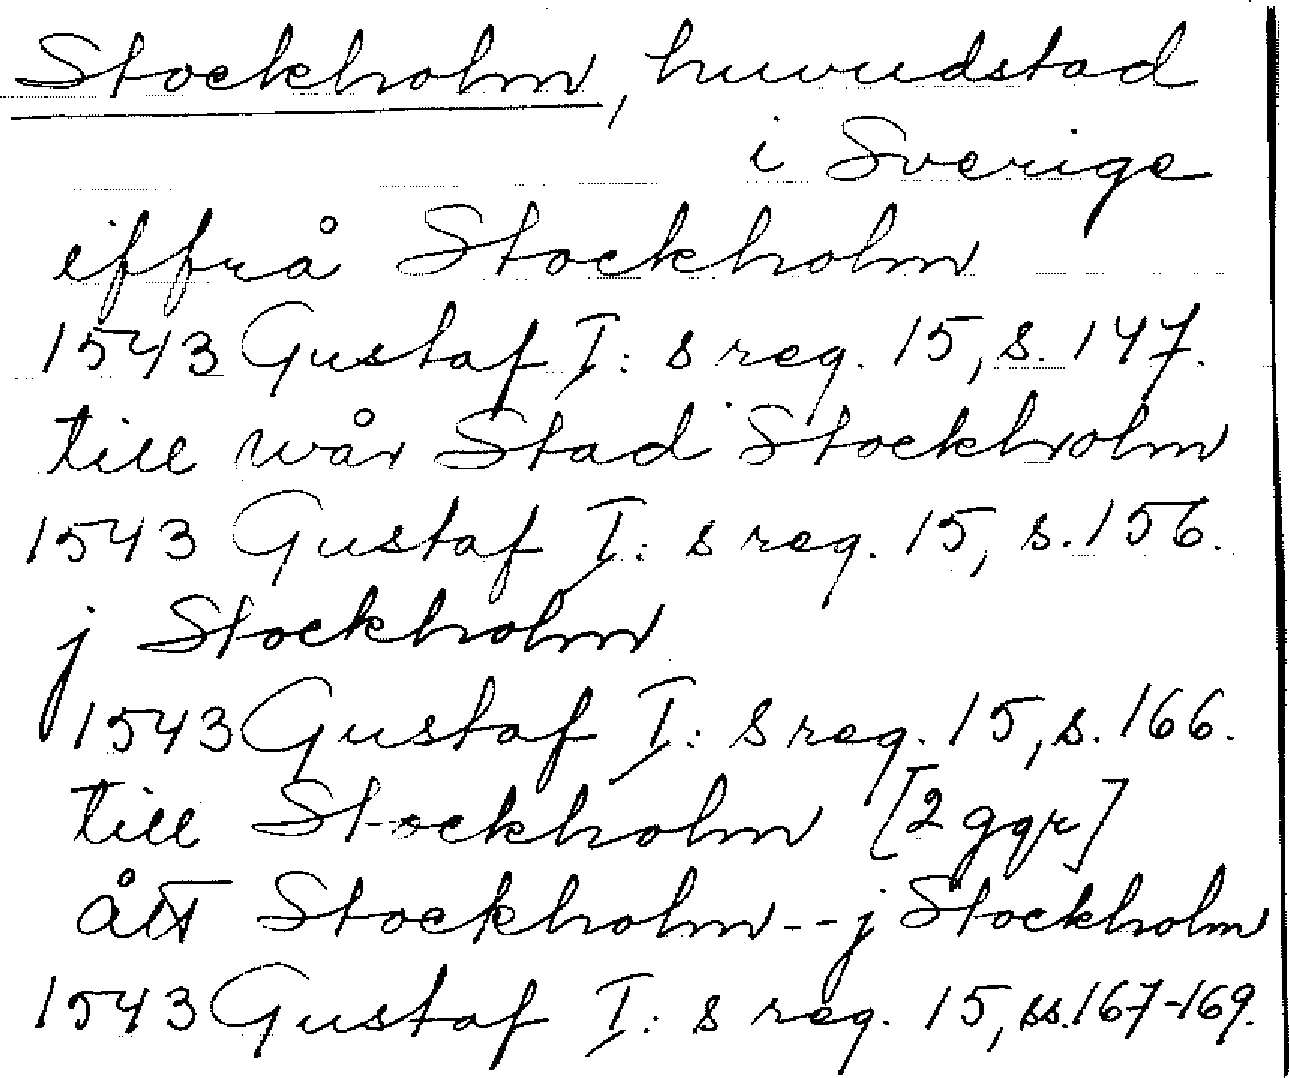 Stockholm, huvudstad
i Sverige
iffrå Stockholm
1543 Gustaf I: s reg. 15, s. 147.
till wår Stad Stockholm
1543 Gustaf I: s reg. 15, s. 156.
j Stockholm
1543 Gustaf I: s reg. 15, s. 166.
till Stockholm [2 ggr]
ått Stockholm -- j Stockholm
1543 Gustaf I: s reg. 15, ss. 167-169.